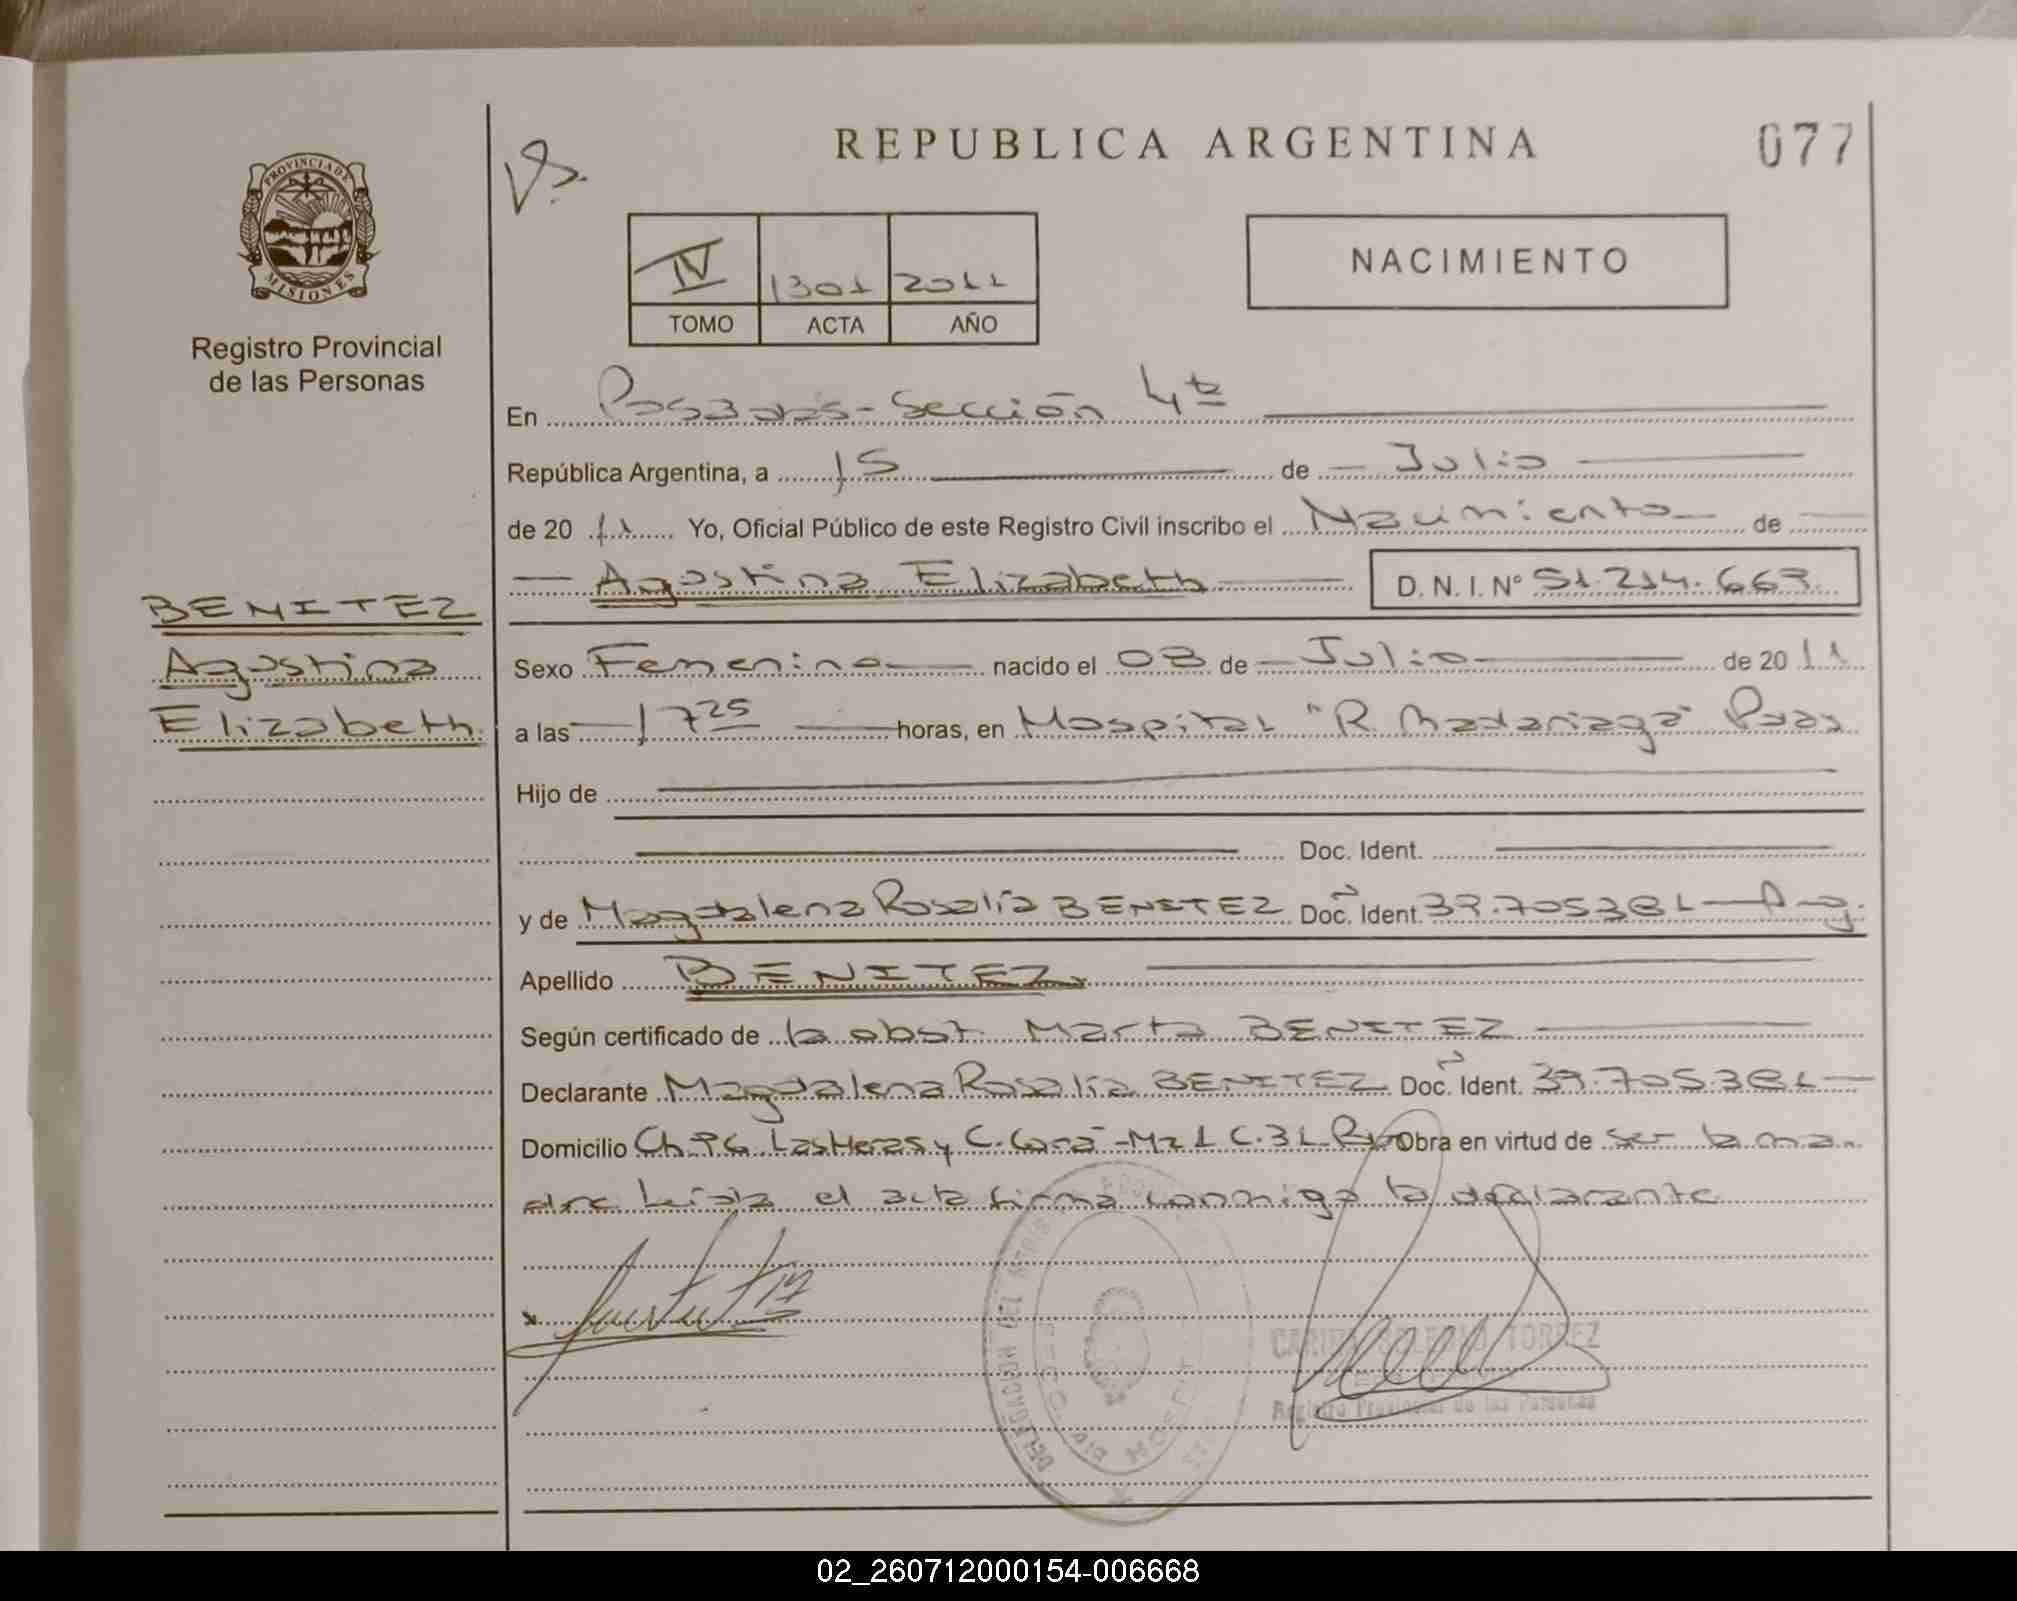 REPUBLICA ARGENTINA
077
PROVINCIA DE
MISIONES
Registro Provincial
de las Personas
IV 1301 2011
TOMO ACTA AÑO
NACIMIENTO
En Posadas - Sección 4ta
República Argentina, a 15 de Julio
de 2011 Yo, Oficial Público de este Registro Civil inscribo el Nacimiento de
Agostina Elizabeth D.N.I. Nº 51.214.663.
BENITEZ
Agostina
Elizabeth
Sexo Femenino nacido el 03 de Julio de 2011
a las 17 25 horas, en Hospital "R. Madariaga" Pdas
Hijo de
Doc. Ident.
y de Magdalena Rosalía BENITEZ Doc. Ident. 39.705381 - Arg.
Apellido BENITEZ
Según certificado de la obst. Marta BENITEZ
Declarante Magdalena Rosalía BENITEZ Doc. Ident. 39.705.381
Domicilio Ch. Las Heras y C. - Mz 1 C. 31 Obra en virtud de ser la ma
dre Leída el acta firma conmigo la declarante
TORREZ
Registro Provincial de las Personas
02_260712000154-006668